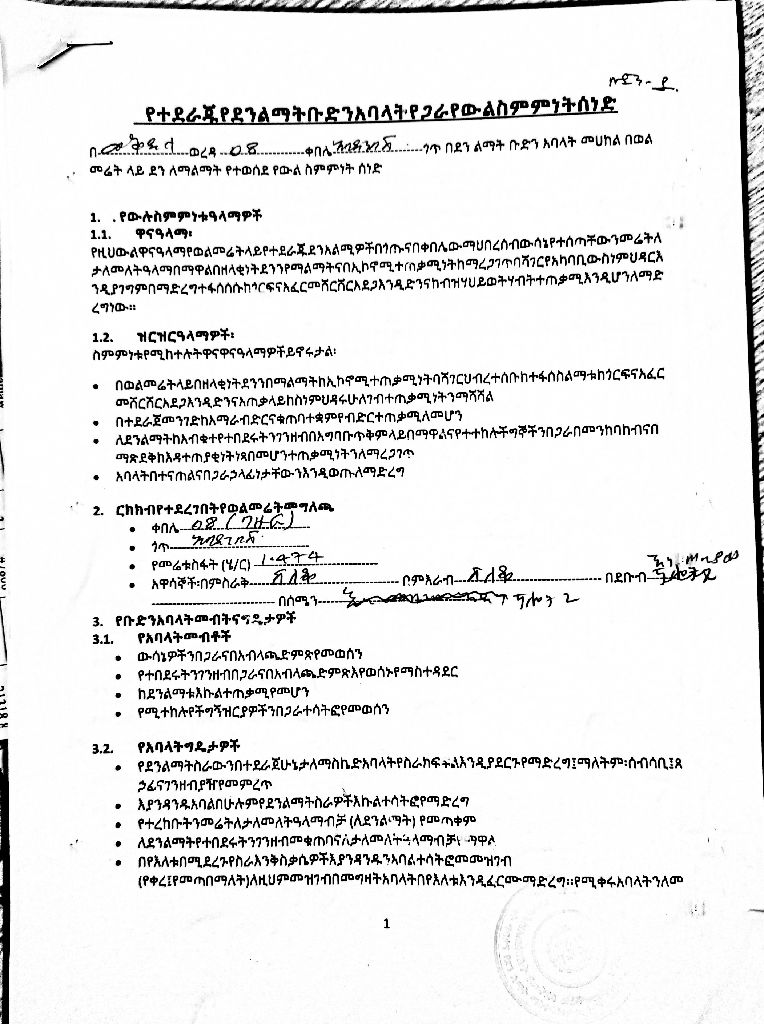 የተደራጁየደንልማትቡድንአባላትየጋራየውልስምምነትሰነድ
በ ወረዳ 08 ቀበሌ ጎጥ በደን ልማት ቡድን አባላት መሀከል በወል
መሬት ላይ ደን ለማልማት የተወሰደ የውል ስምምነት ሰነድ
1. .የውሉስምምነቱዓላማዎች
1.1. ዋናዓላማ፡
የዚህውልዋናዓላማየወልመሬትላይየተደራጁደንአልሚዎችበጎጡናበቀበሌውማህበረሰብውሳኔየተሰጣቸውንመሬትለ
ታለመለትዓላማበማዋልበዘላቂነትደንንየማልማትናበኢኮኖሚተጠቃሚነትከማረጋገጥባሻገርየአካባቢውስነምህዳርእ
ንዲያገግምበማድረግተፋሰሱከጎርፍናአፈርመሸርሸርአደጋእንዲድንናከብዝሃህይወትሃብትተጠቃሚእንዲሆንለማድ
ረግነው።
1.2. ዝርዝርዓላማዎች፡
ስምምነቱየሚከተሉትዋናዋናዓላማዎችይኖሩታል፡
• በወልመሬትላይበዘላቂነትደንንበማልማትከኢኮኖሚተጠቃሚነትባሻገርህብረተሰቡከተፋሰስልማቱከጎርፍናአፈር
መሸርሸርአደጋእንዲድንናአጠቃላይከስነምህዳሩሁለገብተጠቃሚነትንማሻሻል
• በተደራጀመንገድከአማራብድርናቁጠባተቋምየብድርተጠቃሚለመሆን
• ለደንልማትከአብቁተየተበደሩትንገንዘብበአግባቡጥቅምላይበማዋልናየተተከሉችግኞችንበጋራበመንከባከብናበ
ማጽደቅከእዳተጠያቂነትነጻበመሆንተጠቃሚነትንለማረጋገጥ
• አባላትበተናጠልናበጋራኃላፊነታቸውንእንዲወጡለማድረግ
2. ርክክብየተደረገበትየወልመሬትመግለጫ
• ቀበሌ 08
• ጎጥ
• የመሬቱስፋት (ሄ/ር) 1.474
• አዋሳኞች፡በምስራቅ ሸለቆ በምእራብ ሸለቆ በደቡብ
በሰሜን
3. የቡድንአባላትመብትናግዴታዎች
3.1. የአባላትመብቶች
• ውሳኔዎችንበጋራናበአብላጫድምጽየመወሰን
• የተበደሩትንገንዘብበጋራናበአብላጫድምጽእየወሰኑየማስተዳደር
• ከደንልማቱእኩልተጠቃሚየመሆን
• የሚተከሉየችግኝዝርያዎችንበጋራተሳትፎየመወሰን
3.2. የአባላትግዴታዎች
• የደንልማትስራውንበተደራጀሁኔታለማስኬድአባላትየስራክፍፍልእንዲያደርጉየማድረግ፤ማለትም፡ሰብሳቢ፤ጸ
ኃፊናገንዘብያዥየመምረጥ
• እያንዳንዱአባልበሁሉምየደንልማትስራዎችእኩልተሳትፎየማድረግ
• የተረከቡትንመሬትለታለመለትዓላማብቻ (ለደንልማት) የመጠቀም
• ለደንልማትየተበደሩትንገንዘብመቆጠባናለታለመለትዓላማብቻ ማዋል
• በየእለቱበሚደረጉየስራእንቅስቃሴዎችእያንዳንዱንአባልተሳትፎመመዝገብ
(የቀረ፤የመጣበማለት)ለዚህምመዝገብበመግዛትአባላትበየእለቱእንዲፈርሙማድረግ።የሚቀሩአባላትንለመ
1